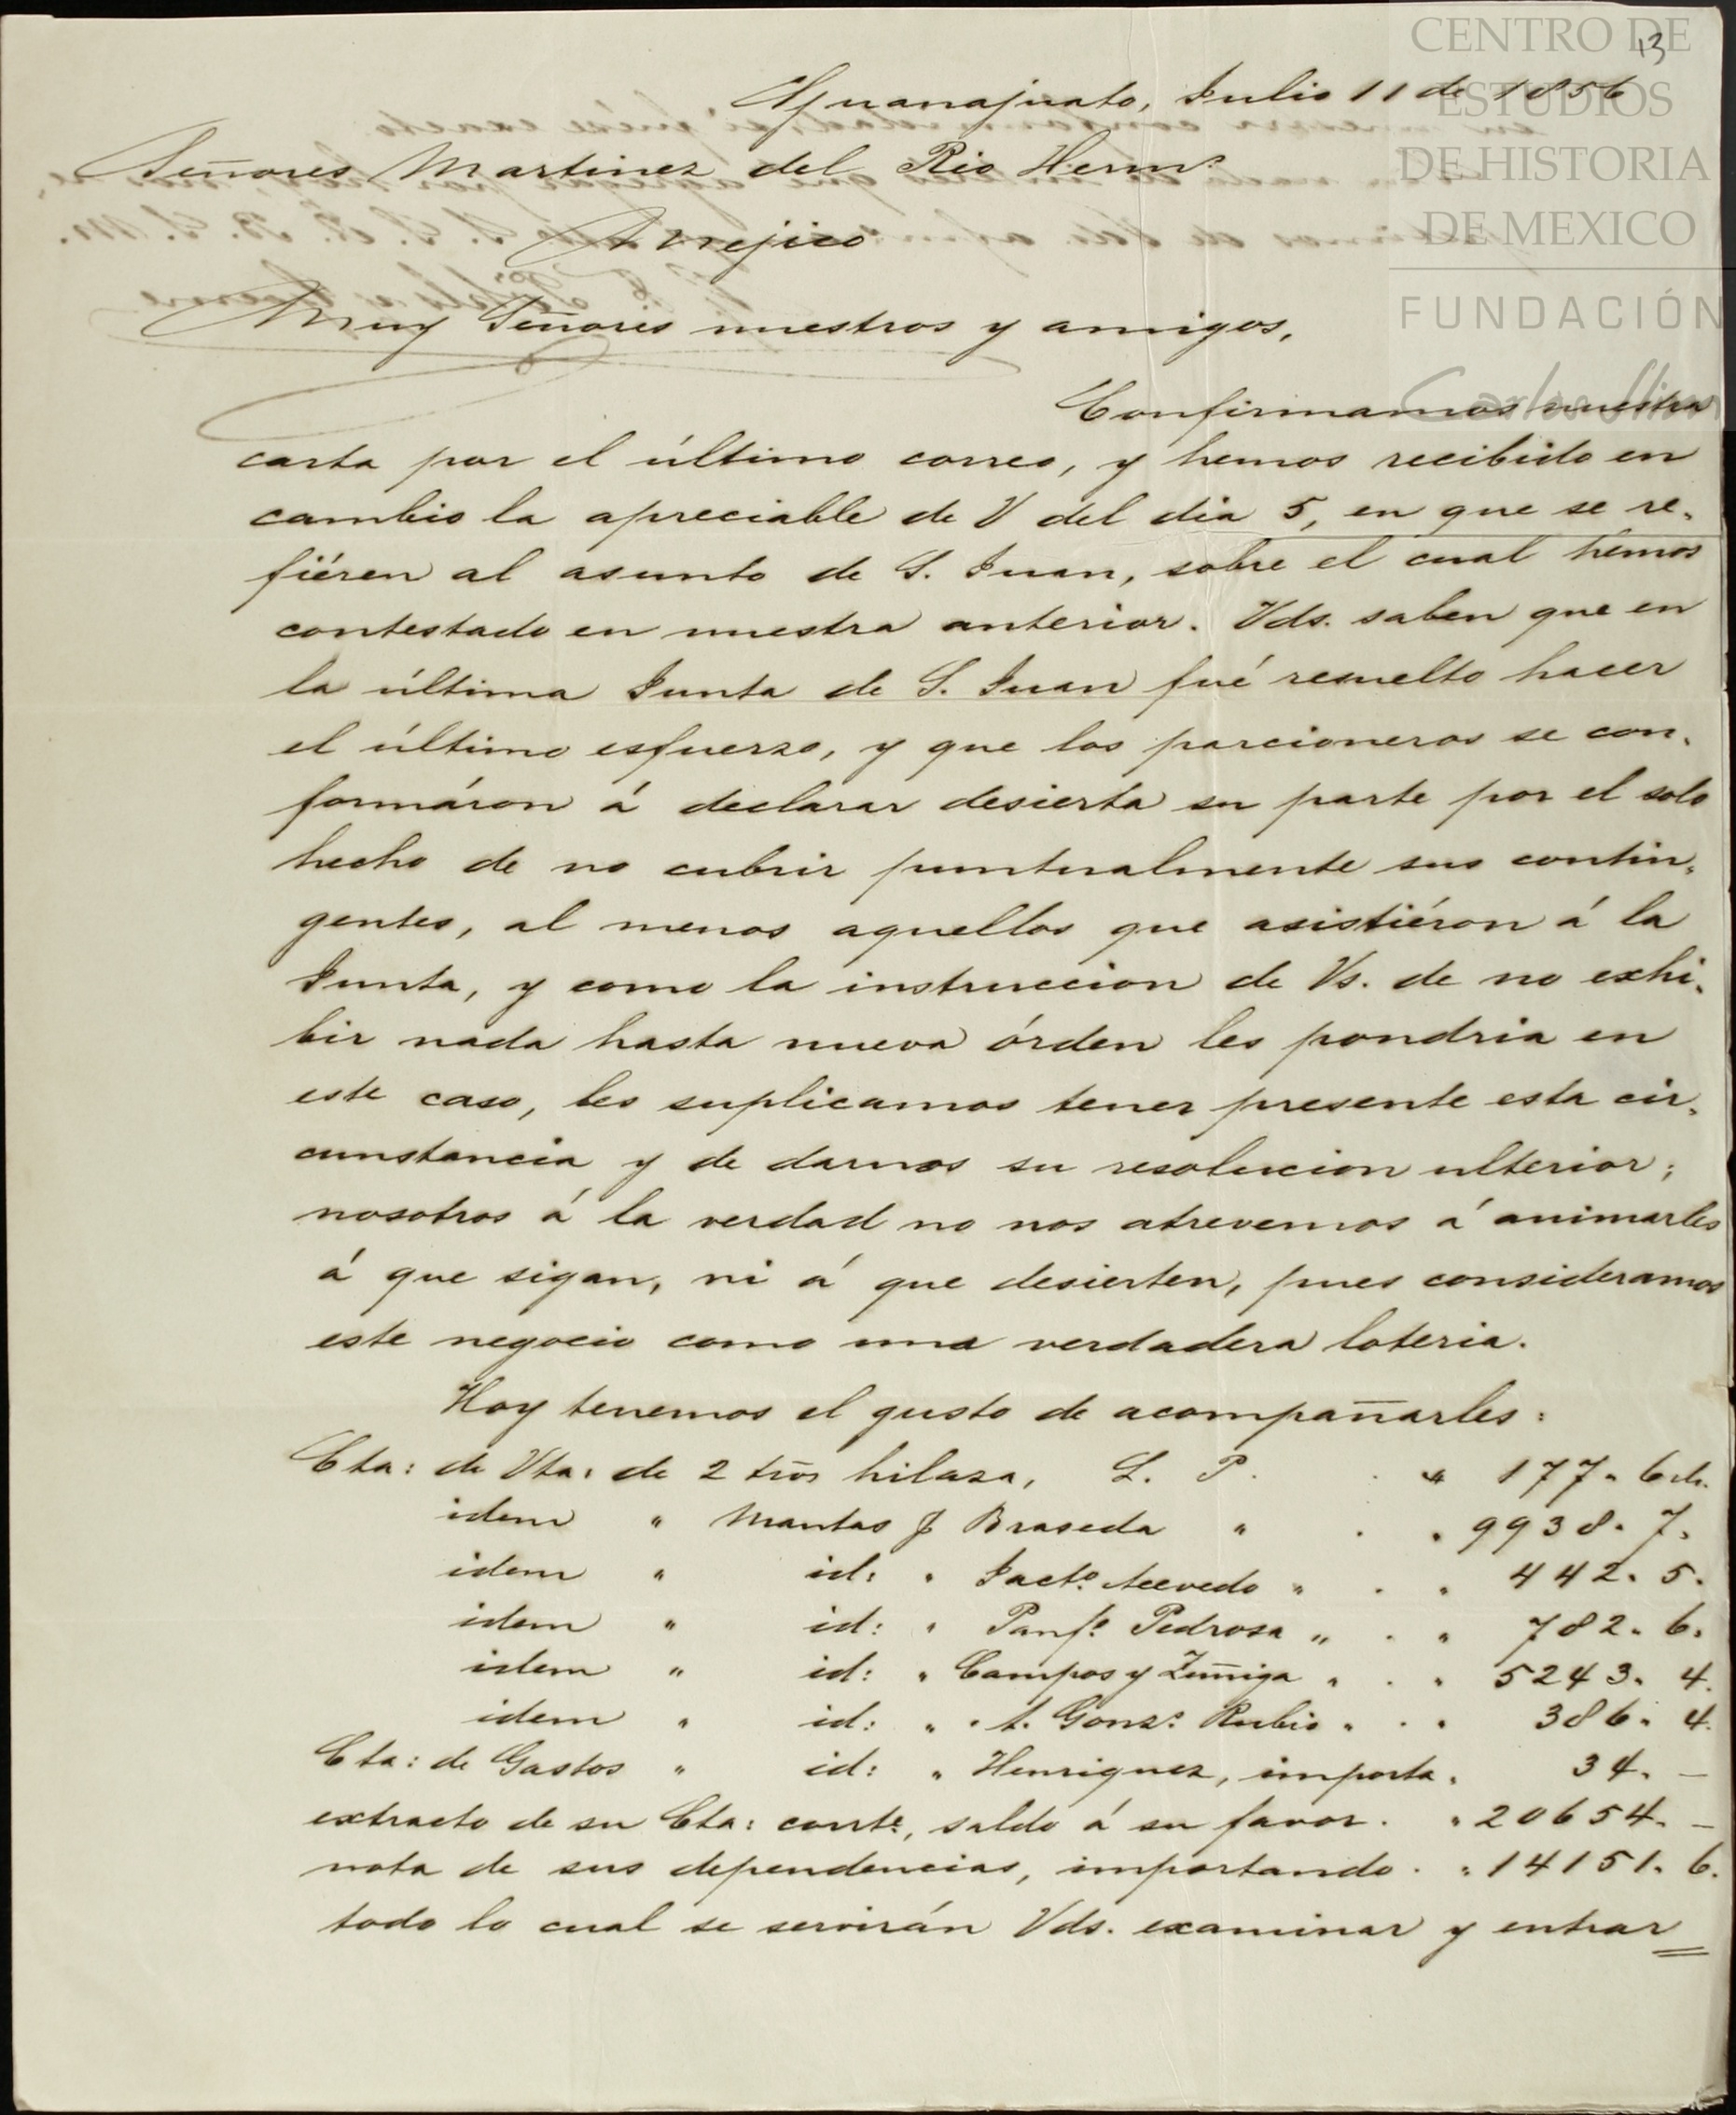 CENTRO DE
ESTUDIOS
DE HISTORIA
DE MEXICO
FUNDACIÓN
Carlos Slim
13
Guanajuato, Julio 11 de 1856
Señores Martinez del Rio Herms
Mejico
Muy Señores nuestros y amigos,
Confirmamos nuestra
carta por el último correo, y hemos recibido en
cambio la apreciable de V del dia 5, en que se re-
fiéren al asunto de S. Juan, sobre el cual hemos
contestado en nuestra anterior. Vds. saben que en
la última Junta de S. Juan fué resuelto hacer
el último esfuerzo, y que los parcioneros se con-
formáron á declarar desierta su parte por el solo
hecho de no cubrir puntualmente sus contin-
gentes, al menos aquellos que asistiéron á la
Junta, y como la instruccion de Vs. de no exhi-
bir nada hasta nueva órden les pondria en
este caso, les suplicamos tener presente esta cir-
cunstancia y de darnos su resolucion ulterior;
nosotros á la verdad no nos atrevemos á animarles
á que sigan, ni á que desierten, pues consideramos
este negocio como una verdadera loteria.
Hoy tenemos el gusto de acompañarles:
Cta: de Vta: de 2 tños hilaza, L. P. . " 177. 6 rls.
idem " Mantas f Braseda " . . 9938. 7.
idem " id: " Jacto. Acevedo " . " 442. 5.
idem " id: " Panfo. Pedrosa " . " 782. 6.
idem " id: " Campos y Zuñiga " . " 5243. 4.
idem " id: " A. Gonzs. Rubio " . " 386. 4.
Cta: de Gastos " id: " Henriquez, importa " 34. –
extracto de su Cta: corrte, saldo á su favor . " 20654. –
nota de sus dependencias, importando . " 14151. 6.
todo lo cual se servirán Vds. examinar y entrar